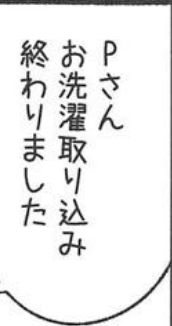 Pさん
お洗濯取り込み
終わりました